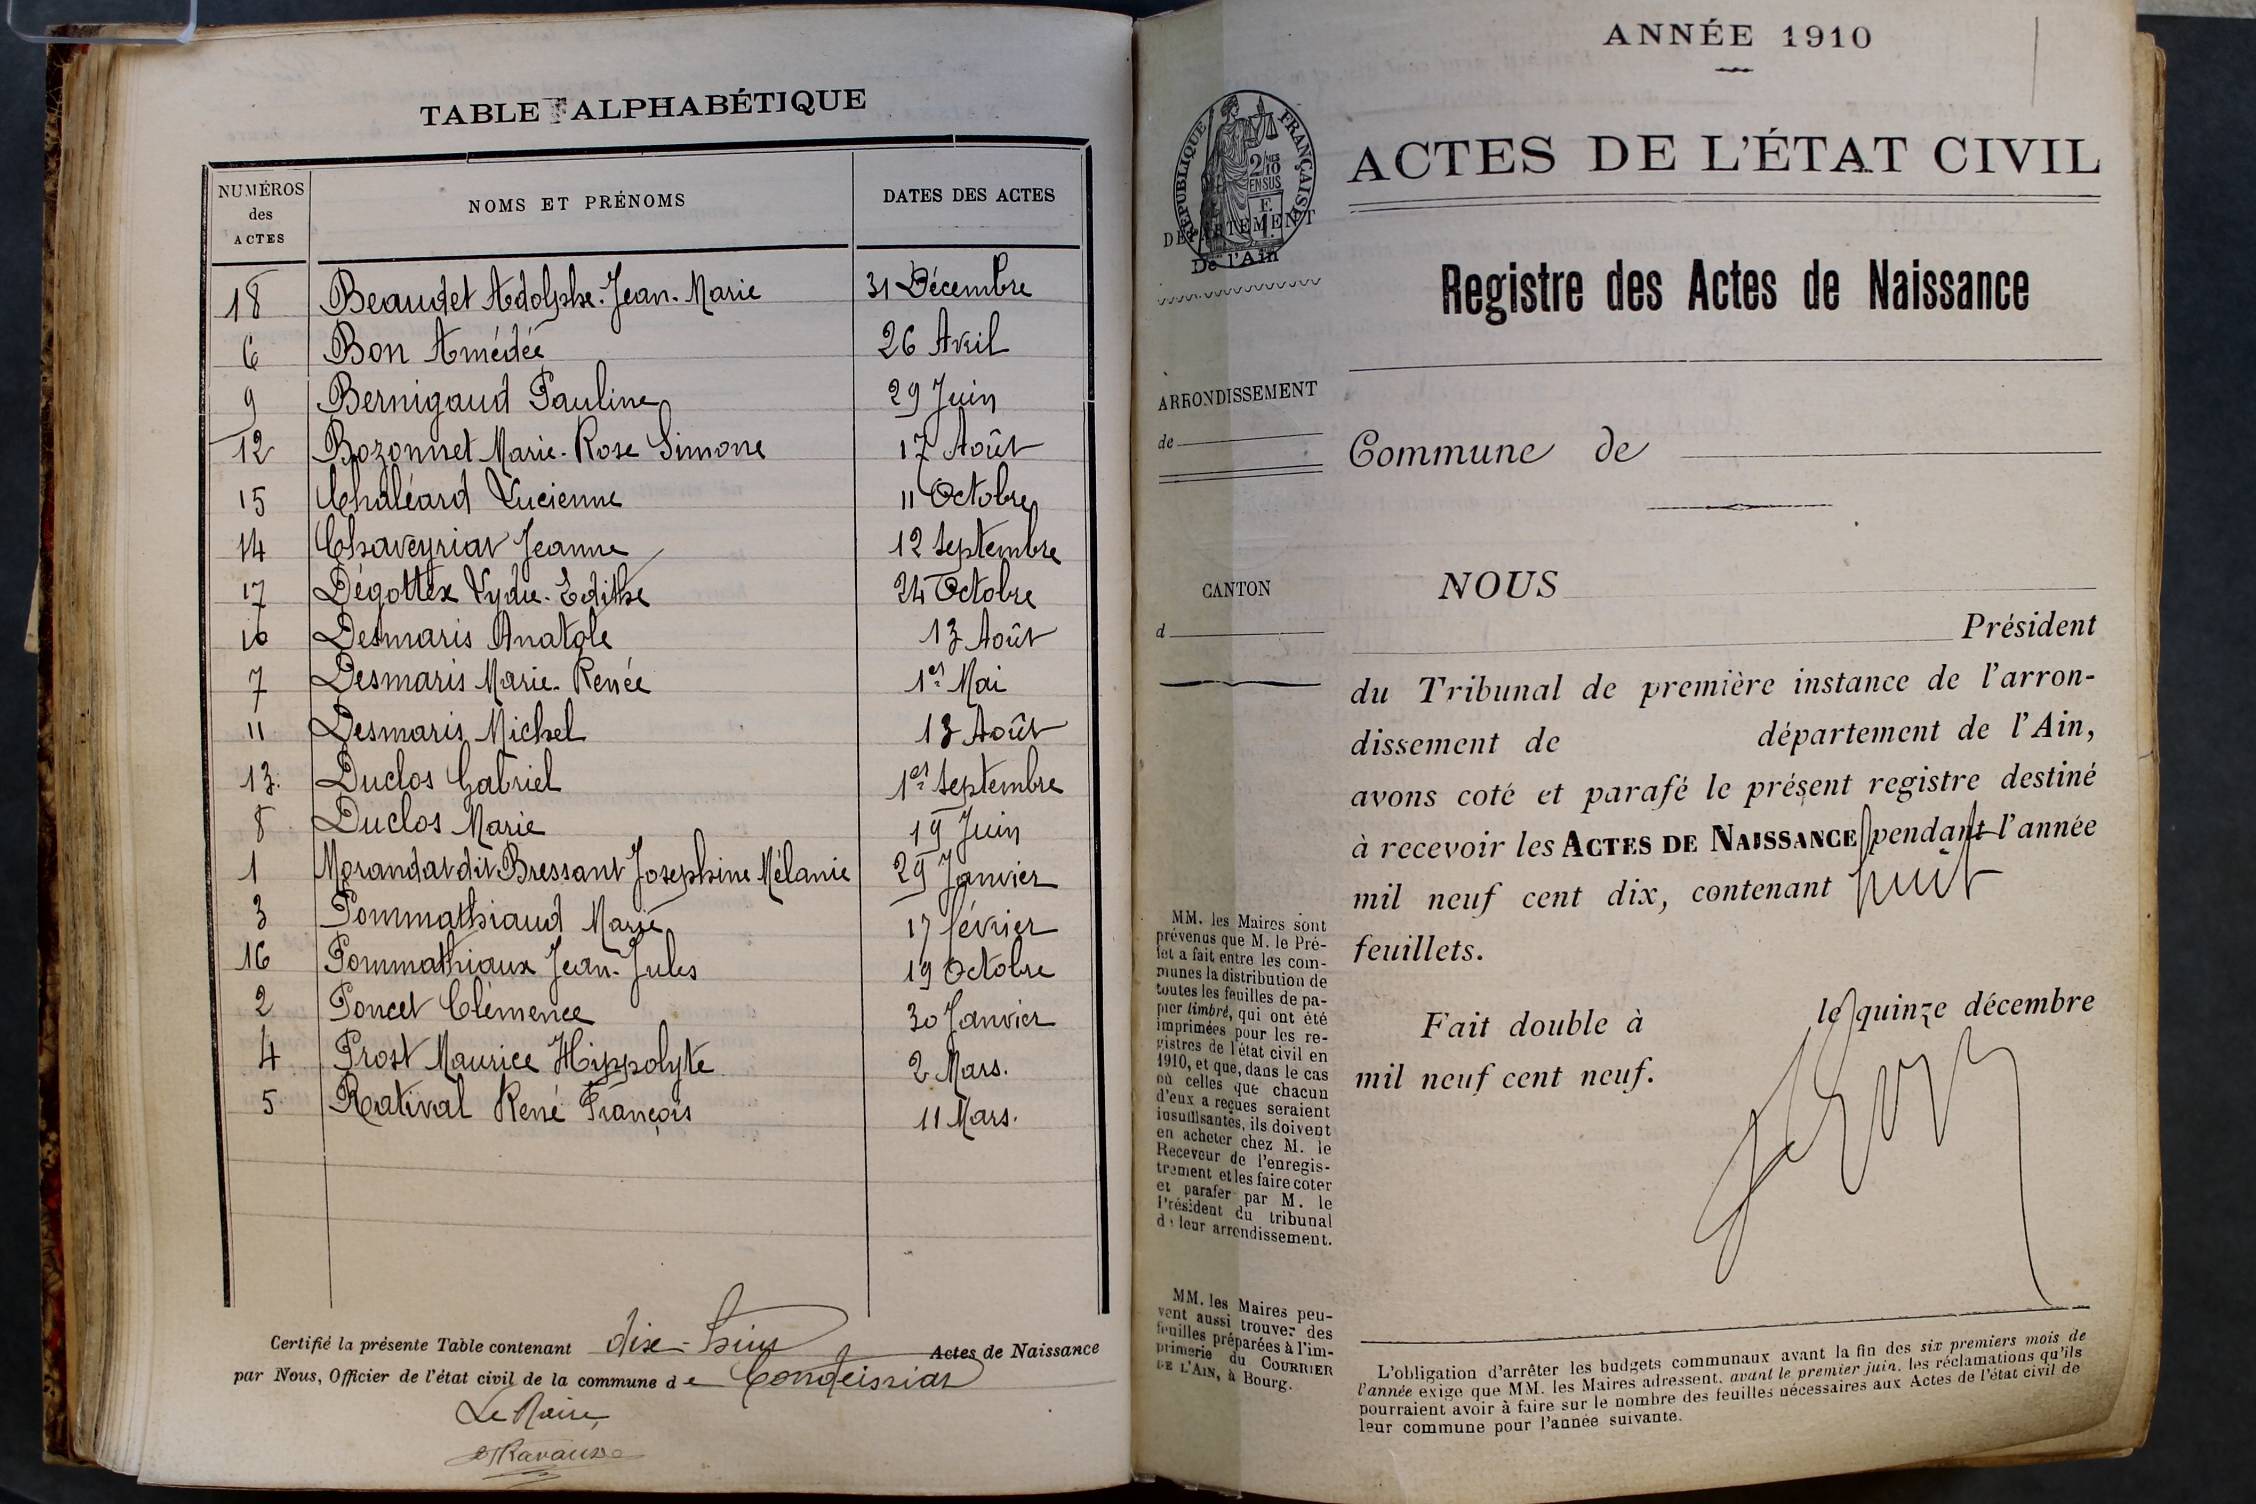 TABLE ALPHABÉTIQUE
NUMÉROS des ACTES | NOMS ET PRÉNOMS | DATES DES ACTES
18 Beaudet Adolphe-Jean-Marie 31 Décembre
6 Bon Amédée 26 Avril
9 Bernigaud Pauline 29 Juin
12 Bozonnet Marie-Rose Simone 17 Août
15 Chaléard Lucienne 11 Octobre
14 Chaveyriat Jeanne 12 Septembre
17 Dégottex Lydie-Edithe 24 Octobre
10 Desmaris Anatole 13 Août
7 Desmaris Marie-Renée 1er Mai
11 Desmaris Michel 13 Août
13. Duclos Gabriel 1er Septembre
8 Duclos Marie 19 Juin
1 Morandat dit Bressant Joséphine Mélanie 29 Janvier
3 Pommathiaud Marie 17 février
16 Pommathiaux Jean-Jules 19 Octobre
2 Poncet Clémence 30 Janvier
4 Prost Maurice Hippolyte 2 Mars.
5 Rativat René François 11 Mars.
Certifié la présente Table contenant dix-huit Actes de Naissance
par Nous, Officier de l'état civil de la commune de Condeissiat
Le Maire,
ANNÉE 1910
RÉPUBLIQUE FRANÇAISE
2/10 EN SUS
ACTES DE L'ÉTAT CIVIL
DÉPARTEMENT
De l'Ain
Registre des Actes de Naissance
ARRONDISSEMENT
de
Commune de
CANTON
d
NOUS
Président
du Tribunal de première instance de l'arron-
dissement de département de l'Ain,
avons coté et parafé le présent registre destiné
à recevoir les ACTES DE NAISSANCE pendant l'année
mil neuf cent dix, contenant huit
feuillets.
Fait double à le quinze décembre
mil neuf cent neuf.
MM. les Maires sont
prévenus que M. le Pré-
fet a fait entre les com-
munes la distribution de
toutes les feuilles de pa-
pier timbré, qui ont été
imprimées pour les re-
gistres de l'état civil en
1910, et que, dans le cas
où celles que chacun
d'eux a reçues seraient
insuffisantes, ils doivent
en acheter chez M. le
Receveur de l'enregis-
trement et les faire coter
et parafer par M. le
Président du tribunal
de leur arrondissement.
MM. les Maires peu-
vent aussi trouver des
feuilles préparées à l'im-
primerie du COURRIER
DE L'AIN, à Bourg.
L'obligation d'arrêter les budgets communaux avant la fin des six premiers mois de
l'année exige que MM. les Maires adressent, avant le premier juin, les réclamations qu'ils
pourraient avoir à faire sur le nombre des feuilles nécessaires aux Actes de l'état civil de
leur commune pour l'année suivante.